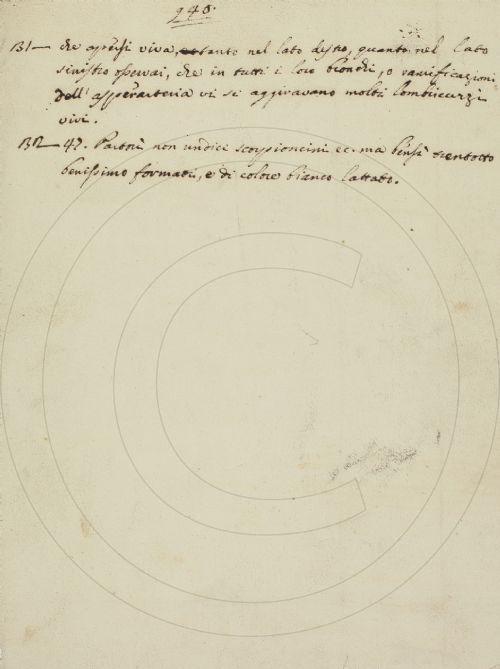 240.
131— che apersi viva, tanto nel lato destro, quanto nel lato
sinistro osservai, che in tutti i loro bronchi, o ramificazioni
dell' asperarteria vi si aggiravano molti lombricuzzi
vivi.
132—47. Partorì non undici scorpioncini ec. ma bensì trentotto
benissimo formati, e di colore bianco lattato.